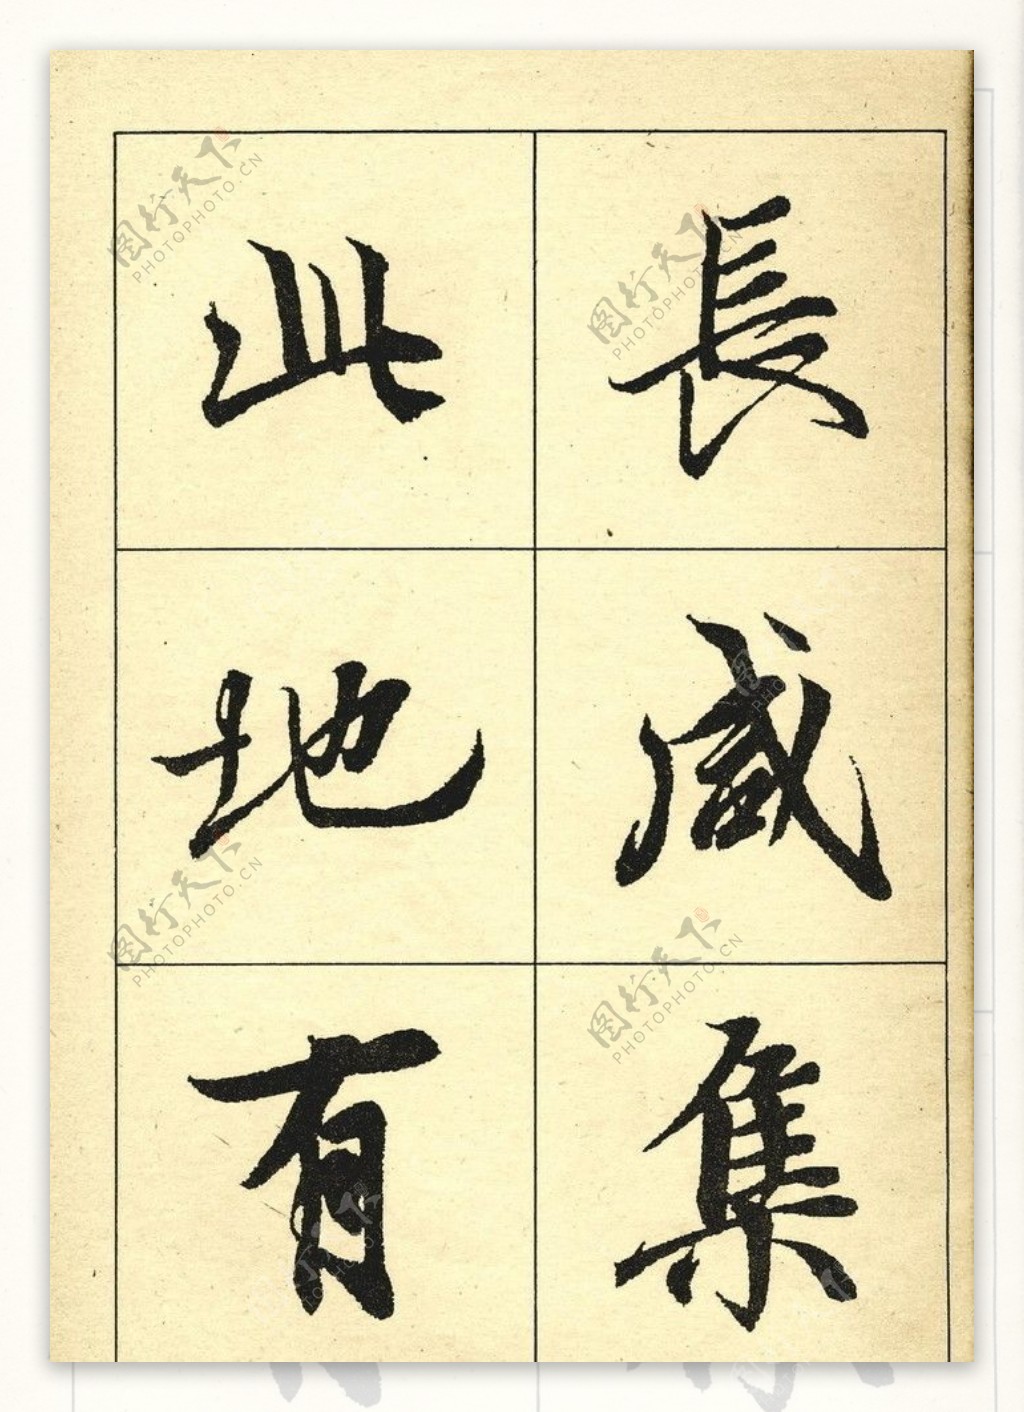 長咸集
此地有
图行天下
PHOTOPHOTO.CN
图行天下
PHOTOPHOTO.CN
图行天下
PHOTOPHOTO.CN
图行天下
PHOTOPHOTO.CN